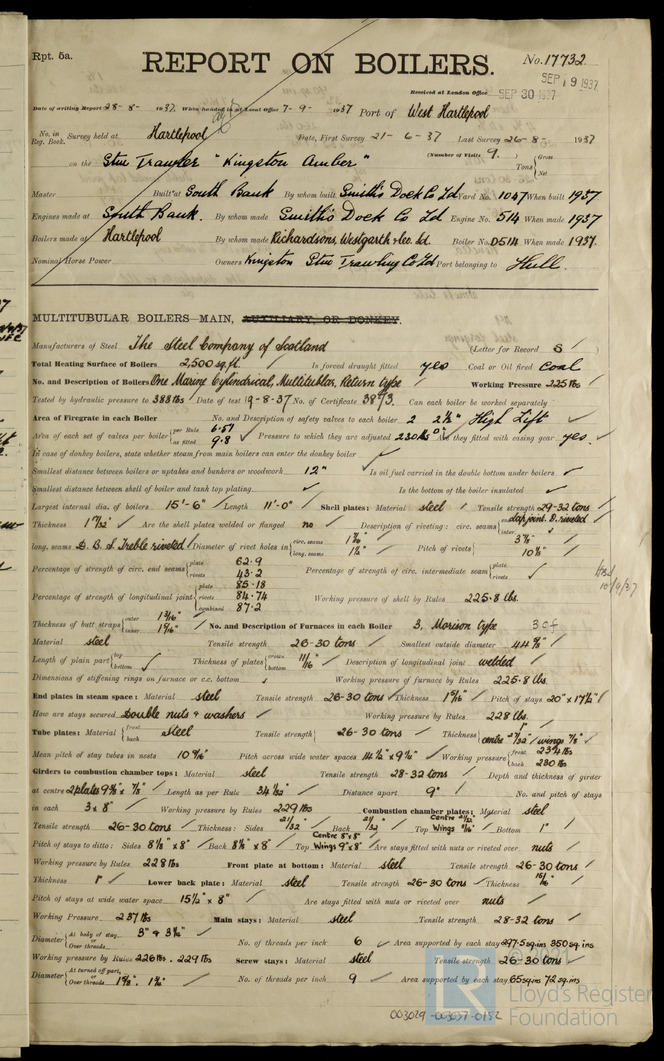 Rpt. 5a.
REPORT ON BOILERS.
No. 17732
SEP 19 1937
Received at London Office SEP 30 1937
Date of writing Report 28-8- 1937 When handed in at Local Office 7-9- 1937 Port of West Hartlepool
No. in Reg. Book. Survey held at Hartlepool Date, First Survey 21-6-37 Last Survey 26-8- 1937
on the Stm Trawler "Kingston Amber" (Number of Visits 9.) Tons { Gross Net
Master Built at South Bank By whom built Smith's Dock Co Ld Yard No. 1047 When built 1937
Engines made at South Bank. By whom made Smith's Dock Co Ld Engine No. 514 When made 1937
Boilers made at Hartlepool By whom made Richardsons, Westgarth & Co. Ld. Boiler No. D514 When made 1937.
Nominal Horse Power Owners Kingston Stm Trawling Co Ld Port belonging to Hull.
MULTITUBULAR BOILERS MAIN, AUXILIARY, OR DONKEY.
Manufacturers of Steel The Steel Company of Scotland (Letter for Record S )
Total Heating Surface of Boilers 2,500 sq.ft. Is forced draught fitted yes Coal or Oil fired Coal
No. and Description of Boilers One Marine Cylindrical, Multitublar, Return type Working Pressure 225 lbs
Tested by hydraulic pressure to 388 lbs Date of test 19-8-37 No. of Certificate 3873. Can each boiler be worked separately
Area of Firegrate in each Boiler No. and Description of safety valves to each boiler 2 High Lift
Area of each set of valves per boiler { per Rule 6.51 as fitted 9.8 Pressure to which they are adjusted 230 lbs Are they fitted with easing gear yes.
In case of donkey boilers, state whether steam from main boilers can enter the donkey boiler
Smallest distance between boilers or uptakes and bunkers or woodwork 12" Is oil fuel carried in the double bottom under boilers
Smallest distance between shell of boiler and tank top plating Is the bottom of the boiler insulated
Largest internal dia. of boilers 15'-6" Length 11'-0" Shell plates: Material steel Tensile strength 29-32 tons
Thickness 1 7/32" Are the shell plates welded or flanged no Description of riveting: circ. seams { end lap joint. D. riveted inter.
long. seams D.B.S Treble riveted Diameter of rivet holes in { circ. seams long. seams Pitch of rivets {
Percentage of strength of circ. end seams { plate 62.9 rivets 43.2 Percentage of strength of circ. intermediate seam { plate rivets
Percentage of strength of longitudinal joint { plate 85.18 rivets 84.74 combined 87.2 Working pressure of shell by Rules 225.8 lbs.
Thickness of butt straps { outer inner No. and Description of Furnaces in each Boiler 3, Morison type
Material steel Tensile strength 26-30 tons Smallest outside diameter
Length of plain part { top bottom Thickness of plates { crown bottom 11/16" Description of longitudinal joint welded
Dimensions of stiffening rings on furnace or c.c. bottom Working pressure of furnace by Rules 225.8 lbs
End plates in steam space: Material steel Tensile strength 26-30 tons Thickness Pitch of stays 20" x 17½"
How are stays secured Double nuts & washers Working pressure by Rules 228 lbs.
Tube plates: Material { front back steel Tensile strength { 26-30 tons Thickness { centre 27/32" wings 7/8"
Mean pitch of stay tubes in nests Pitch across wide water spaces Working pressure { front 234 lbs back 280 lbs
Girders to combustion chamber tops: Material steel Tensile strength 28-32 tons Depth and thickness of girder
at centre 2 plates Length as per Rule Distance apart 9" No. and pitch of stays
in each 3 x 8" Working pressure by Rules 229 lbs Combustion chamber plates: Material steel
Tensile strength 26-30 tons Thickness: Sides 21/32" Back 21/32" Top Centre 21/32" Wings Bottom 1"
Pitch of stays to ditto: Sides 8½" x 8" Back 8½" x 8" Top Centre 8" x 8" Wings 9" x 8" Are stays fitted with nuts or riveted over nuts
Working pressure by Rules 228 lbs Front plate at bottom: Material steel Tensile strength 26-30 tons
Thickness 1" Lower back plate: Material steel Tensile strength 26-30 tons Thickness 15/16"
Pitch of stays at wide water space 15½" x 8" Are stays fitted with nuts or riveted over nuts
Working Pressure 237 lbs Main stays: Material steel Tensile strength 28-32 tons
Diameter { At body of stay, or Over threads 3" & 3¼" No. of threads per inch 6 Area supported by each stay 297.5 sq.ins 350 sq.ins
Working pressure by Rules 226 lbs. 229 lbs Screw stays: Material steel Tensile strength 26-30 tons
Diameter { At turned off part, or Over threads No. of threads per inch 9 Area supported by each stay 65 sq.ins 72 sq.ins
003029-003037-0152
Lloyd's Register
Foundation